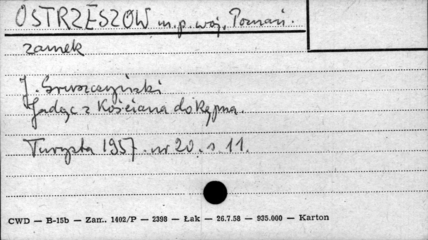 OSTRZESZÓW m.p. woj. Poznań.
zamek
J. Gruszczyński
Jadąc z Kościana do Kępna.
Turysta 1957. nr 20. s 11.
CWD — B-15b — Zam. 1402/P — 2398 — Łak — 26.7.58 — 935.000 — Karton